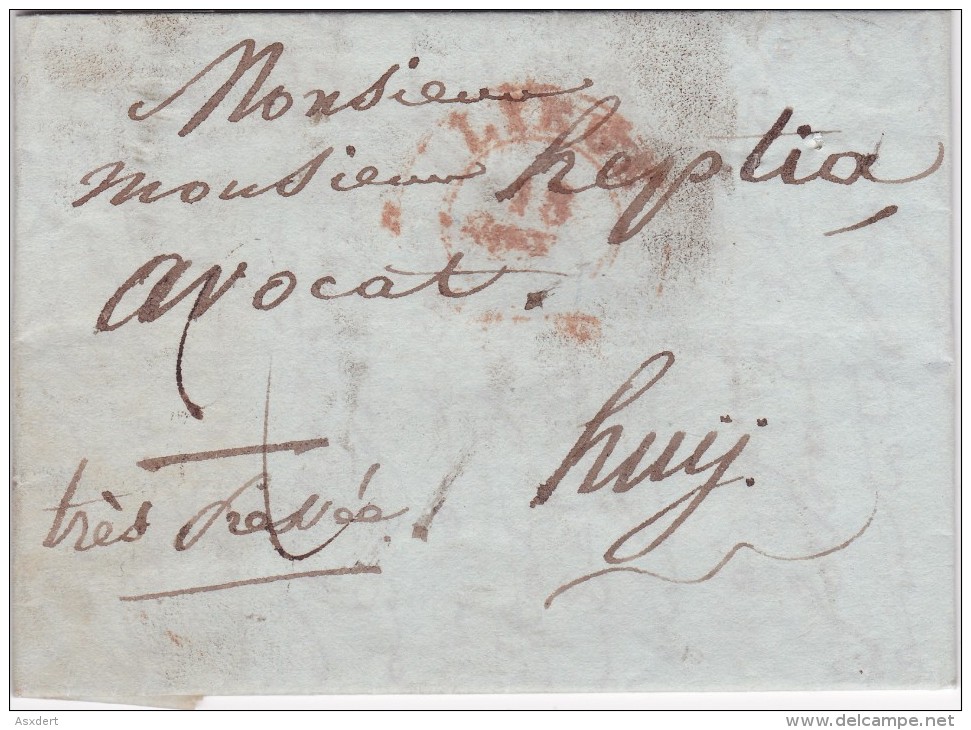 Monsieur
monsieur heptia
avocat.
très
huÿ.
Asxdert
www.delcampe.net